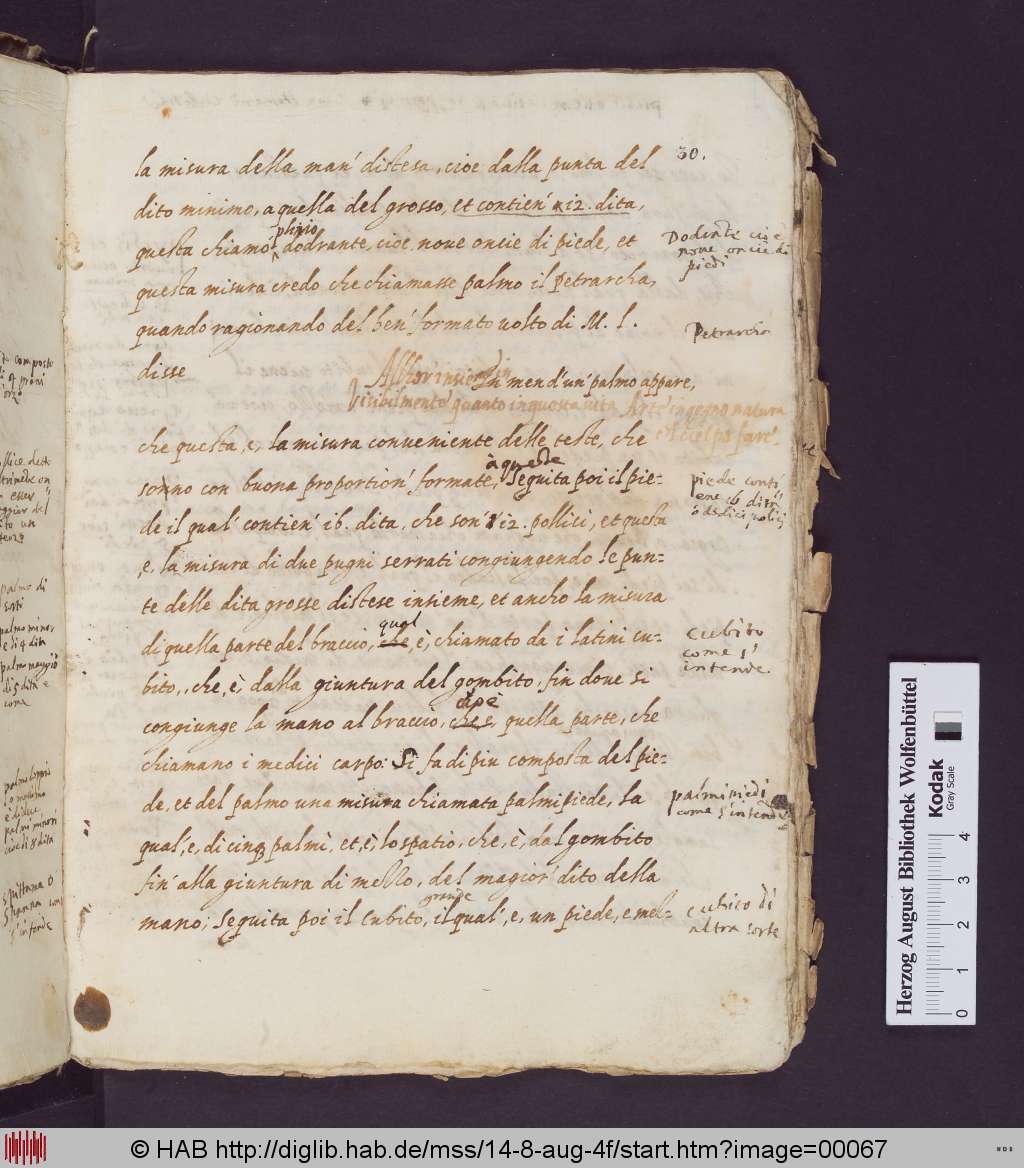 30.
la misura della man' distesa, cioe dalla punta del
dito minimo, a quella del grosso, et contien' 12. dita,
plinio
questa chiamo dodrante, cioe, nove oncie di piede, et
questa misura credo che chiamasse palmo il Petrarcha,
quando ragionando del ben' formato volto di M. l.
disse
Allhor insieme in men d'un' palmo appare,
Visibilmente quanto in questa vita Arte ingegno natura
che questa, e, la misura conveniente delle teste, che
à queste
sonno con buona proportion' formate, Seguita poi il pie=
de il qual' contien' 16. dita, che son' 12. pollici, et questa
,e, la misura di due pugni serrati congiungendo le pun=
te delle dita grosse distese insieme, et ancho la misura
qual
di quella parte del braccio, che, è, chiamato da i latini cu=
bito,, che, è, dalla giuntura del gombito, fin dove si
cioè
congiunge la mano al braccio, che e, quella parte, che
chiamano i medici carpo: Si fa di piu composta del pie=
de, et del palmo una misura chiamata palmipiede, la
qual, e, di cinq palmi, et, è, lo spatio, che, è, dal gombito
fin' alla giuntura di mezzo, del magior' dito della
grande
mano; Seguita poi il Cubito, il qual', e, un piede, e mez=
Dodrante cio è
nove oncie di
piedi
Petrarcha
piede conti
ene 16 diti
o dodici polici
Cubito
come s'
intende
palmipiedi
come s'intende
cubito di
altra sorte
palmo di
sorti
palmo minor
e di 4 dita
palmo maggio
di 5 dita e
come
è di due
palmi minori
cioe di 8 dita
spittama o
Spanna com
s'intende
Herzog August Bibliothek Wolfenbüttel
Kodak
Gray Scale
0 1 2 3 4
© HAB http://diglib.hab.de/mss/14-8-aug-4f/start.htm?image=00067